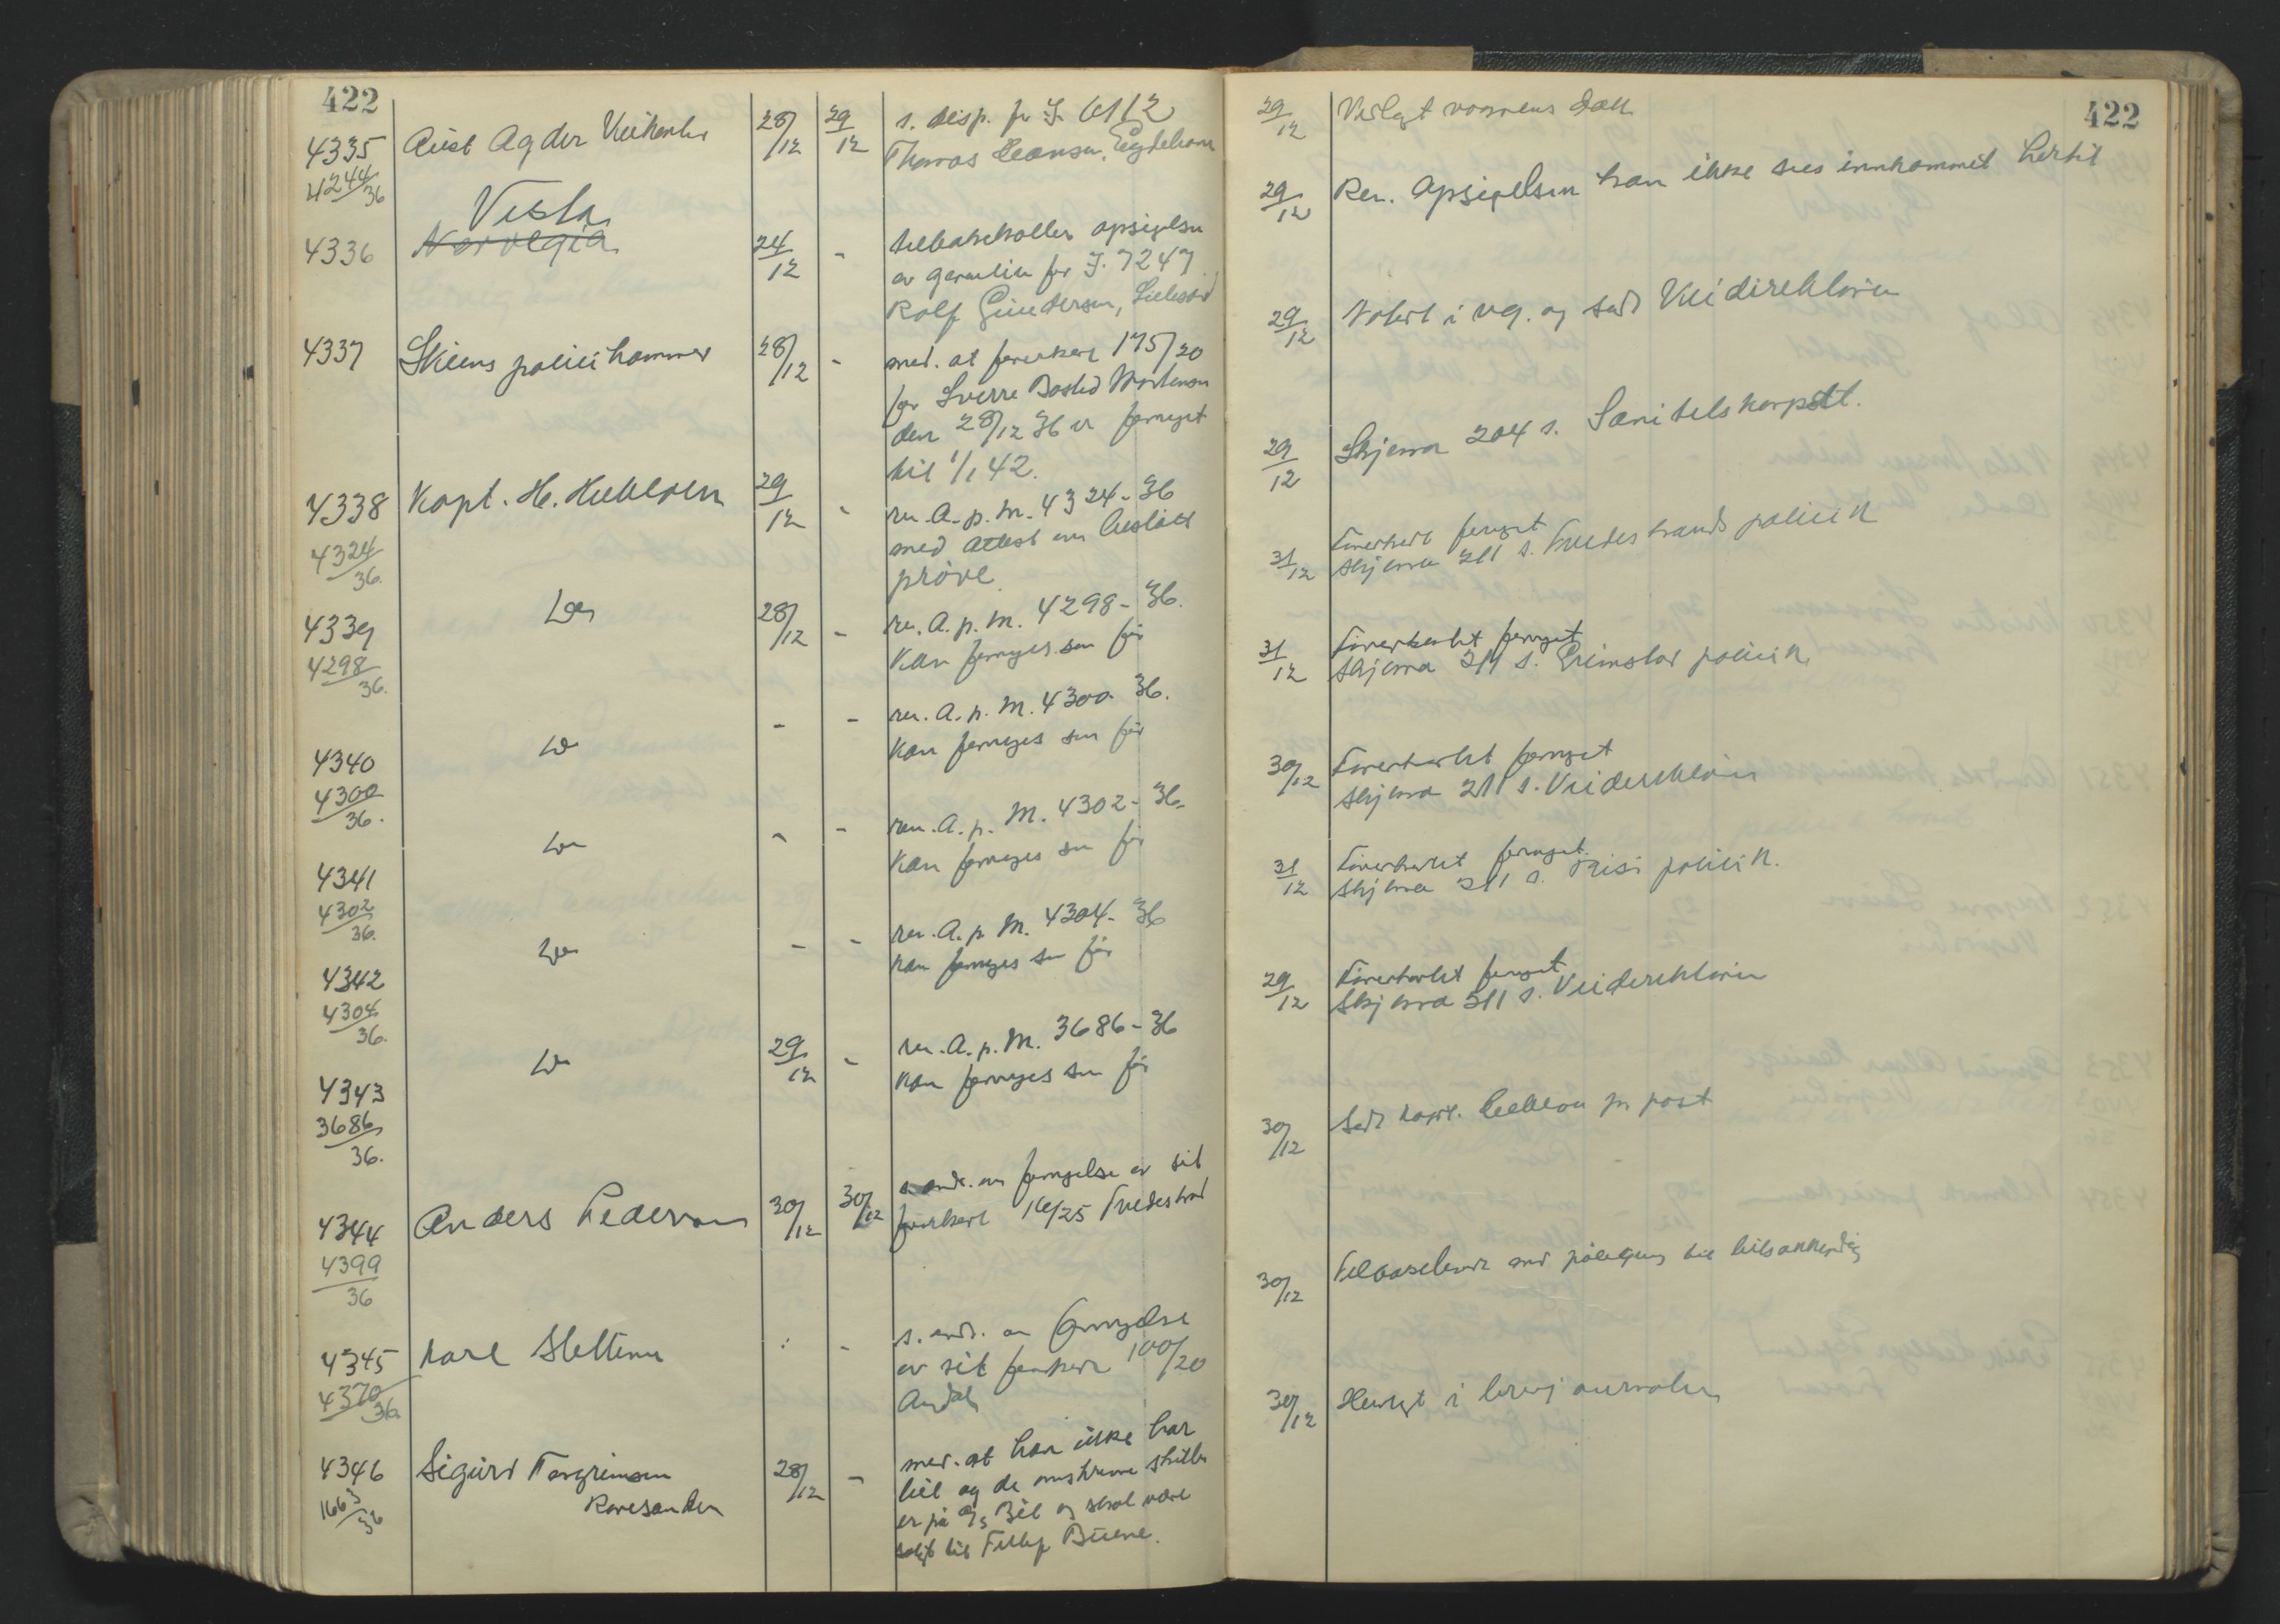 422
4335 Aust Agder Veikontor 28/12 29/12 s. disp. for J. 6112
4244/36 Thomas Hansen, Eydehavn
Vesta
4336 Norvegia 24/12 - tilbakekaller opsigelsen
av garantien for J. 7247
Rolf Gundersen, Lillesand
4337 Skiens politikammer 28/12 - med. at førerkort 175/20
for Sverre Bostad Mortensen
den 28/12 36 er fornyet
til 1/1 42.
4338 Kapt. H. 29/12 - re. A.p.m. 4324-36
4324/36. med attest om bestått
prøve.
4339 Do 28/12 - re. A.p.m. 4298-36.
4298/36. Kan fornyes som før
4340 Do - - re. A.p.M. 4300-36.
4300/36. Kan fornyes som før
4341 Do - - re. A.p.M. 4302-36.
4302/36. Kan fornyes som før
4342 Do - - re. A.p.M. 4304-36
4304/36. Kan fornyes som før
4343 Do 29/12 - re. A.p.M. 3686-36
3686/36. Kan fornyes som før
4344 Anders Pederson 30/12 30/12 s. andr. om fornyelse av sit
4399/36 førerkort 16/25 Tvedestrand
4345 Karl Slettene - - s. andr. om fornyelse
4370/36 av sit førerkort 100/20
Arendal
4346 Sigurd Torgrimsen 28/12 - med. at han ikke har
1663/36 Roresanden bil og de omskrevne skilter
er på Bil og skal være
solgt til Buene.
422
29/12 Vedlagt vognens dok.
29/12 Ren. Opsigelsen kan ikke sees innkommet hertil
29/12 Notert i vg. og sendt Veidirektøren
29/12 Skjema 204 s. Sanitetskorpset.
31/12 Førerkort fornyet
skjema 211 s. Tvedestrands politik
31/12 Førerkortet fornyet
skjema 211 s. Grimstad politik.
30/12 Førerkortet fornyet
skjema 211 s. Veidirektøren
31/12 Førerkortet fornyet
skjema 211 s. Risør politik.
29/12 Førerkortet fornyet
skjema 211 s. Veidirektøren
30/12 Sendt kapt. pr post
30/12 Tilbakesendt med til bilsakkyndig
30/12 Henlagt i brevjournalen